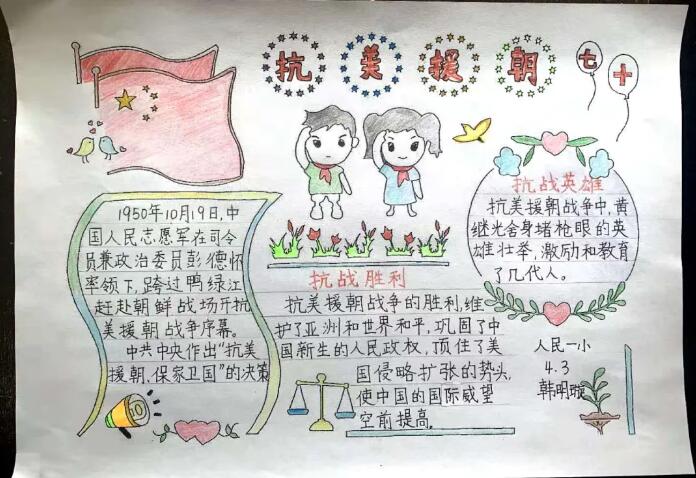 抗美援朝
七十
1950年10月19日,中
国人民志愿军在司令
员兼政治委员彭德怀
率领下,跨过鸭绿江
赶赴朝鲜战场开抗
美援朝战争序幕。
中共中央作出“抗美
援朝、保家卫国”的决策
抗战胜利
抗美援朝战争的胜利,维
护了亚洲和世界和平,巩固了中
国新生的人民政权,顶住了美
国侵略扩张的势头,
使中国的国际威望
空前提高。
抗战英雄
抗美援朝战争中,黄
继光舍身堵枪眼的英
雄壮举,激励和教育
了几代人。
人民一小
4.3
韩明璇